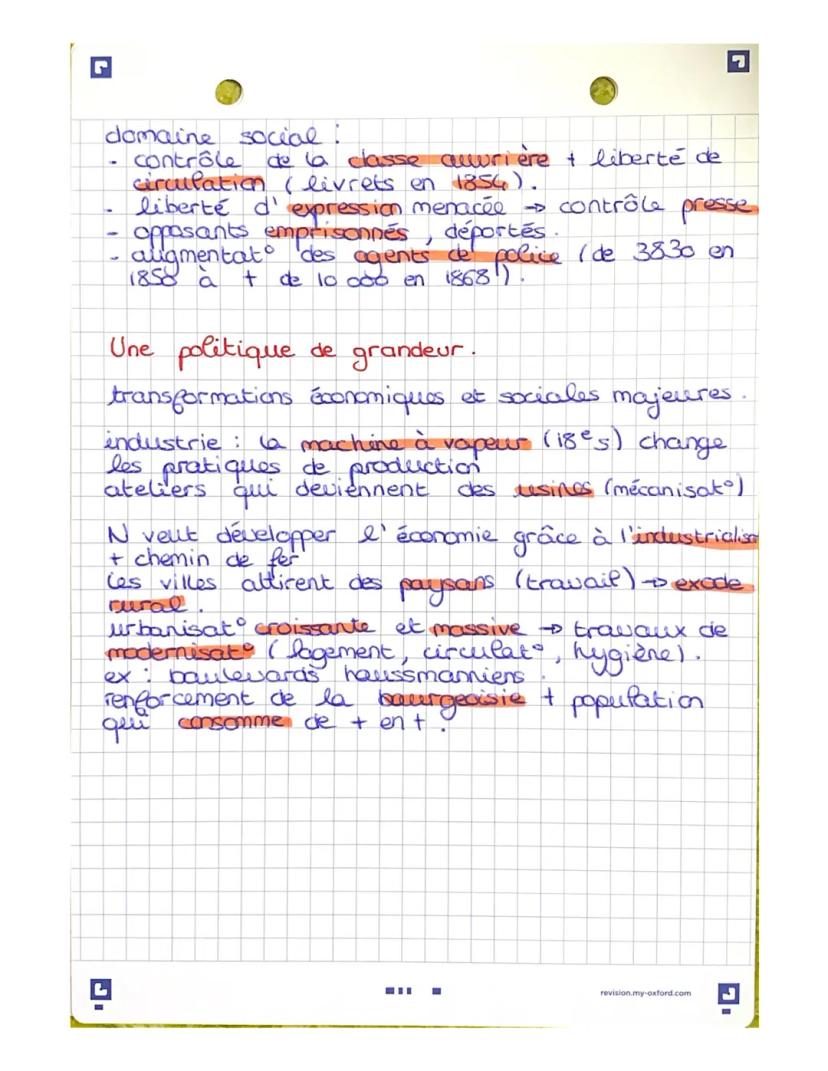 domaine social :
- contrôle de la classe ouvrière + liberté de
circulation (livrets en 1854).
- liberté d'expression menacée → contrôle presse
- opposants emprisonnés, déportés.
- augmentat° des agents de police (de 3830 en
1858 à + de 10 000 en 1868 !).
Une politique de grandeur.
transformations économiques et sociales majeures.
industrie : la machine à vapeur (18e s) change
les pratiques de production
ateliers qui deviennent des usines (mécanisat°)
N veut développer l'économie grâce à l'industrialisa
+ chemin de fer
les villes attirent des paysans (travail) → exode
rural.
urbanisat° croissante et massive → travaux de
modernisat° (logement, circulat°, hygiène).
ex : boulevards haussmanniens.
renforcement de la bourgeoisie + population
qui consomme de + en +.
revision.my-oxford.com